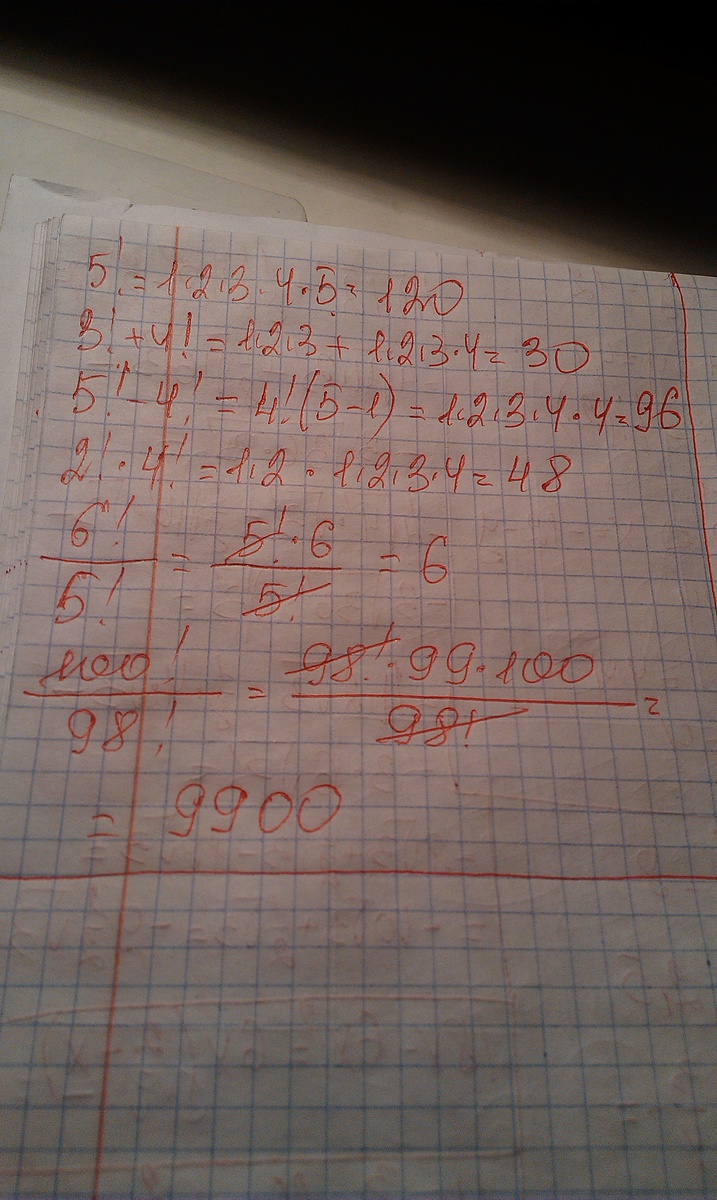 5! = 1·2·3·4·5 = 120
3! + 4! = 1·2·3 + 1·2·3·4 = 30
5! - 4! = 4!(5-1) = 1·2·3·4·4 = 96
2! · 4! = 1·2 · 1·2·3·4 = 48
6!/5! = 5!·6/5! = 6
100!/98! = 98!·99·100/98! =
= 9900